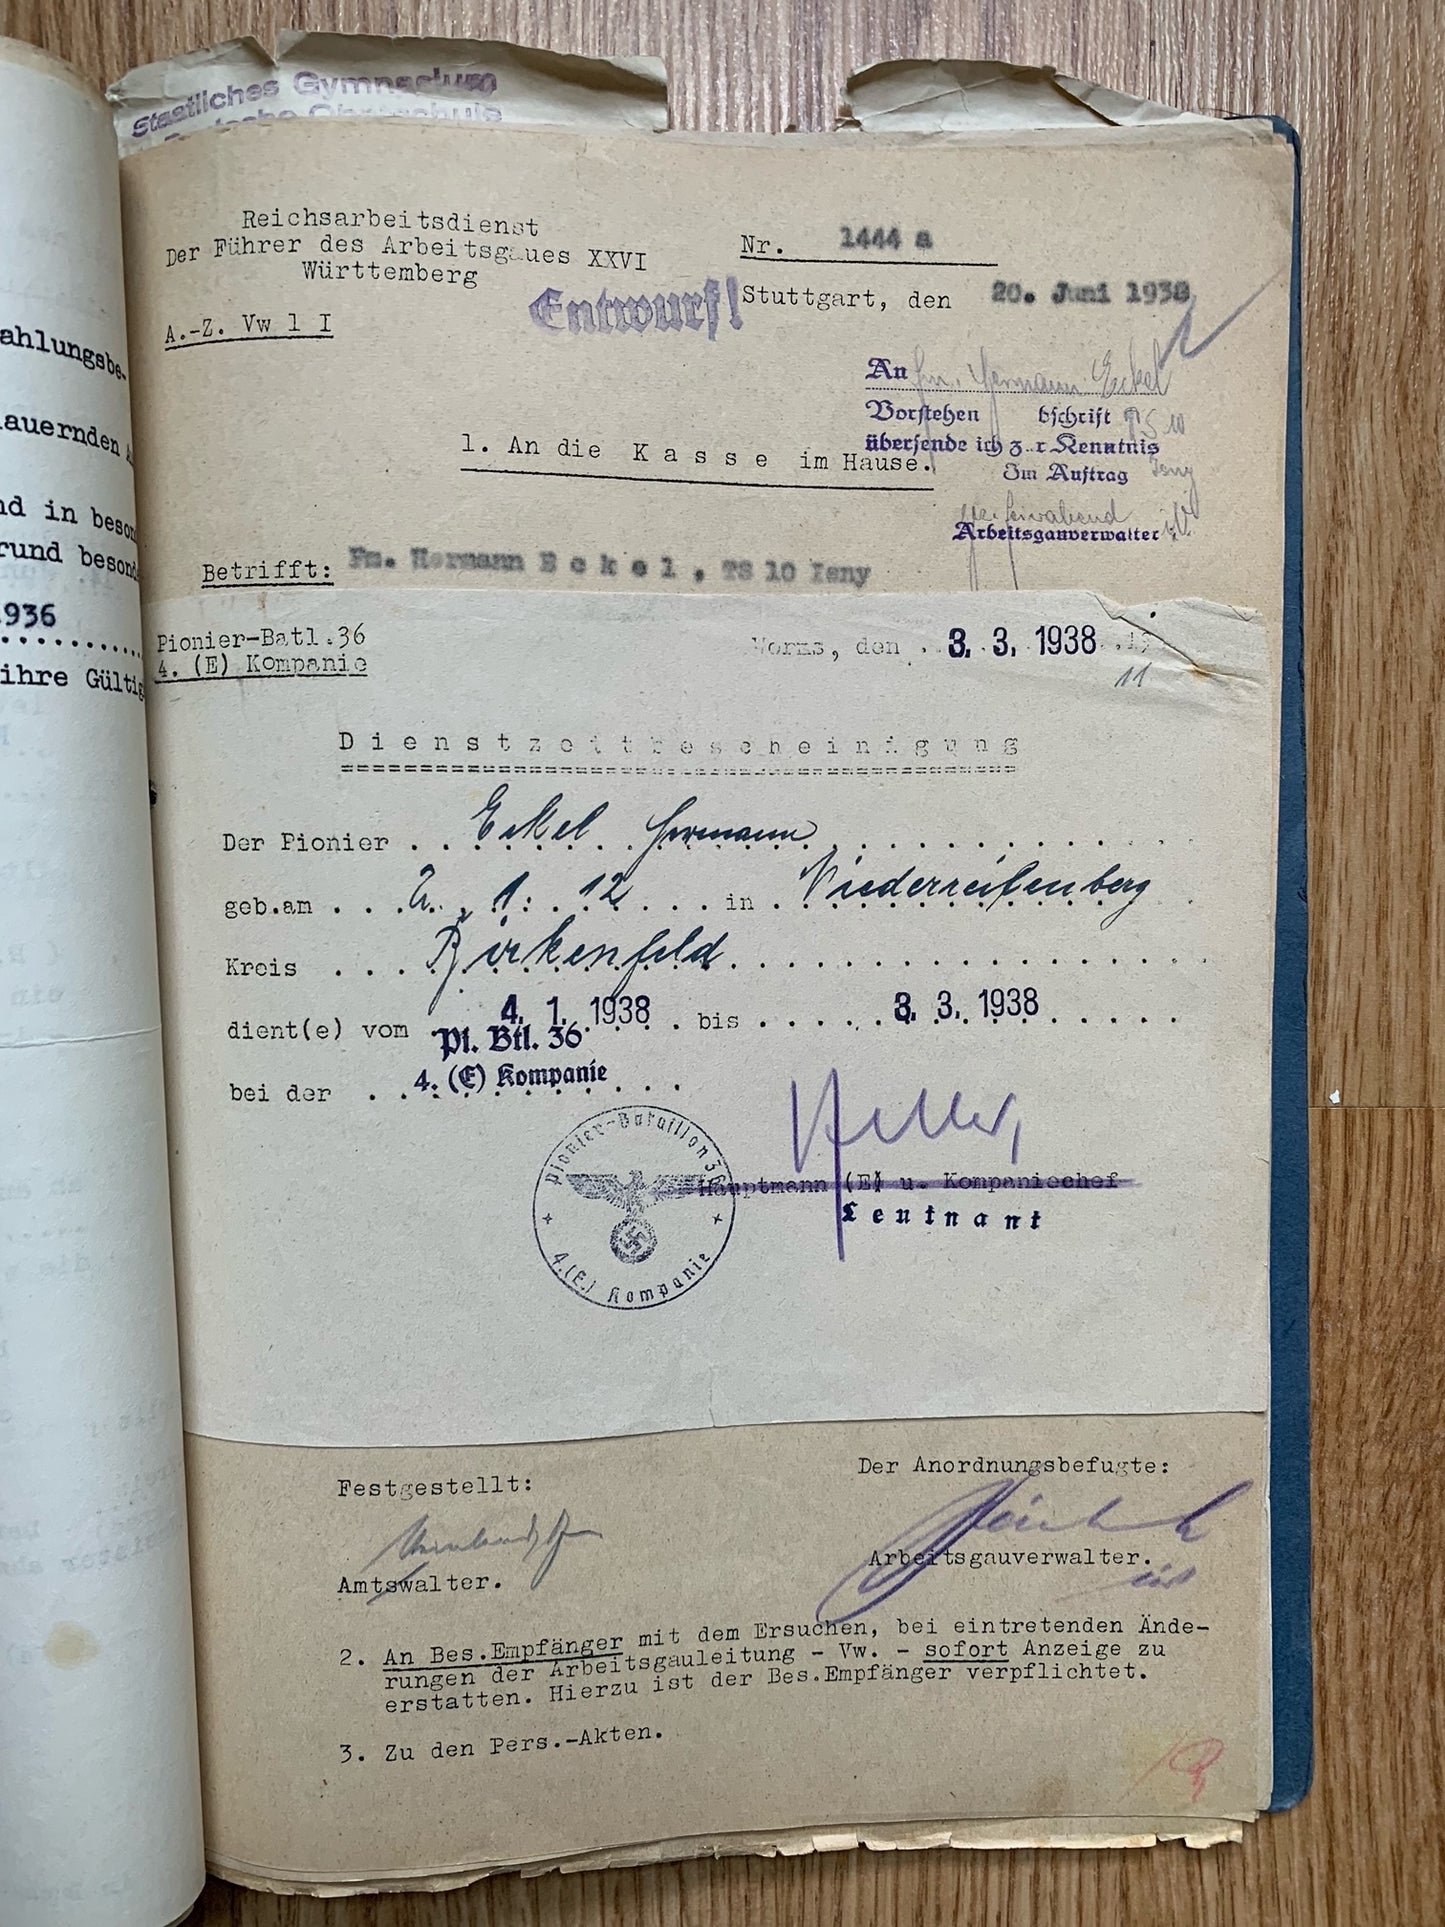 Staatliches Gymnasium
ahlungsbe-
auernden
nd in beson
rund besond
.936
ihre Gültig
Reichsarbeitsdienst
Der Führer des Arbeitsgaues XXVI
Württemberg
A.-Z. Vw 1 I
Entwurf!
Nr. 1444 a
Stuttgart, den 20. Juni 1938
An Fm. Hermann Eckel
Vorstehen bschrift
übersende ich z.r Kenntnis
Im Auftrag
Arbeitsgauverwalter
1. An die K a s s e im Hause.
Betrifft: Fm. Hermann E c k e l , TS 10 Isny
Pionier-Batl.36
4. (E) Kompanie
Worms, den 3. 3. 1938
11
D i e n s t z e i t b e s c h e i n i g u n g
Der Pionier Eckel Hermann
geb.am 2. 1. 12 in Niederreifenberg
Kreis Birkenfeld
dient(e) vom 4. 1. 1938 bis 3. 3. 1938
Pi. Btl. 36
bei der 4. (E) Kompanie
Pionier-Bataillon 36
4.(E.) Kompanie
Hauptmann (E) u. Kompaniechef
Leutnant
Festgestellt:
Amtswalter.
Der Anordnungsbefugte:
Arbeitsgauverwalter.
2. An Bes.Empfänger mit dem Ersuchen, bei eintretenden Ände-
rungen der Arbeitsgauleitung - Vw. - sofort Anzeige zu
erstatten. Hierzu ist der Bes.Empfänger verpflichtet.
3. Zu den Pers.-Akten.